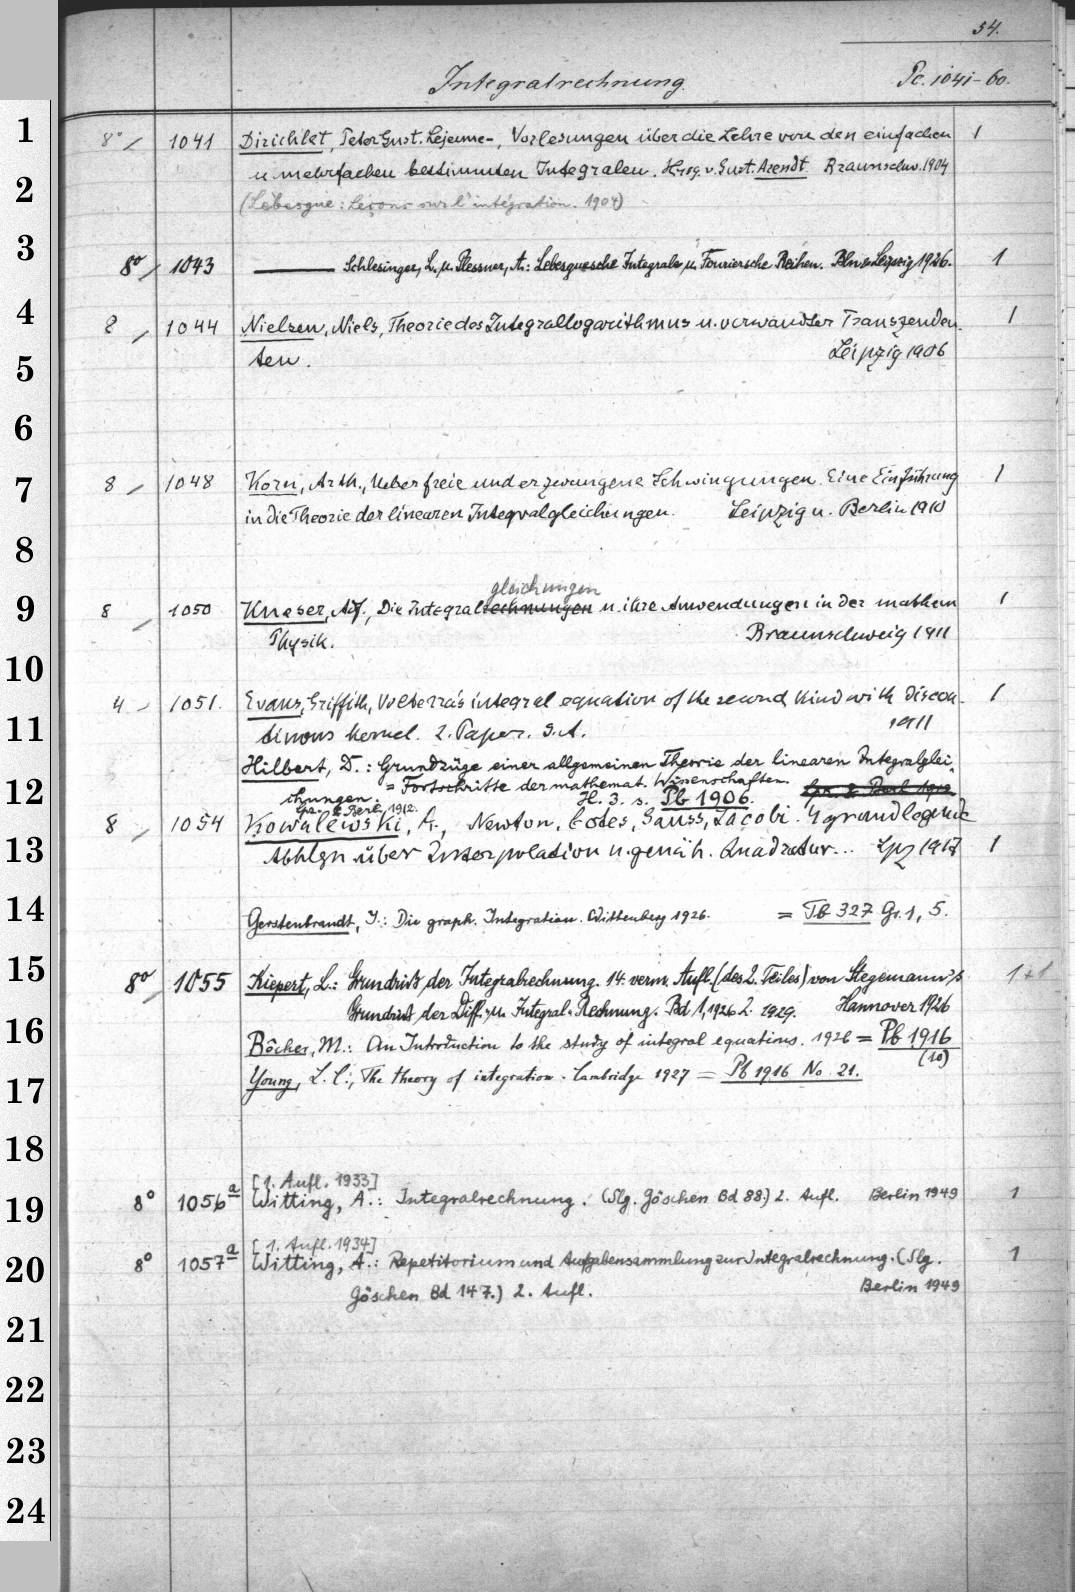 54.
Integralrechnung. Pc. 1041-60.
1 8° / 1041 Dirichlet, Peter Gust. Lejeune-, Vorlesungen über die Lehre von den einfachen 1
2 u. mehrfachen bestimmten Integralen. Hrsg. v. Gust. Arendt. Braunschw. 1904
(Lebesgue: Leçons sur l'intégration. 1904)
3 8° / 1043 ——— Schlesinger, L. u. Plessner, A.: Lebesguesche Integrale u. Fouriersche Reihen. Bln & Leipzig 1926. 1
4 8 / 1044 Nielsen, Niels, Theorie des Integrallogarithmus u. verwandter Transzenden- 1
5 ten. Leipzig 1906
6
7 8 / 1048 Korn, Arth., Ueber freie und erzwungene Schwingungen. Eine Einführung 1
in die Theorie der linearen Integralgleichungen. Leipzig u. Berlin 1910
8
gleichungen
9 8 / 1050 Kneser, Adf., Die Integralrechnungen u. ihre Anwendungen in der mathem 1
Physik. Braunschweig 1911
10
4 / 1051. Evans, Griffith, Volterra's integral equation of the second kind with discon- 1
11 tinous kernel. 2. Paper. S.A. 1911
Hilbert, D.: Grundzüge einer allgemeinen Theorie der linearen Integralglei-
12 chungen. = Fortschritte der mathemat. Wissenschaften.
H. 3. s. Pb 1906. Lpz. & Berl. 1912
Lpz. & Berl. 1912.
8 / 1054 Kowalewski, G., Newton, Cotes, Gauss, Jacobi. 4 grundlegende
13 Abhlgn über Interpolation u. genäh. Quadratur... Lpz 1917 1
14 Gerstenbrandt, J.: Die graph. Integration. Wittenberg 1926. = Tb 327 Gr. 1, 5.
15 8° / 1055 Kiepert, L.: Grundriß der Integralrechnung. 14. verm. Aufl. (des 2. Teiles) von Stegemann's 1+1
Grundriß der Diff.- u. Integral-Rechnung. Bd 1, 1926 2. 1929. Hannover 1926
16 Bôcher, M.: An Introduction to the study of integral equations. 1926 = Pb 1916
(10)
17 Young, L. C., The theory of integration. Cambridge 1927 = Pb 1916 No. 21.
18
[1. Aufl. 1933]
19 8° 1056a Witting, A.: Integralrechnung. (Slg. Göschen Bd 88.) 2. Aufl. Berlin 1949 1
[1. Aufl. 1934]
20 8° 1057a Witting, A.: Repetitorium und Aufgabensammlung zur Integralrechnung. (Slg. 1
Göschen Bd 147.) 2. Aufl. Berlin 1949
21
22
23
24